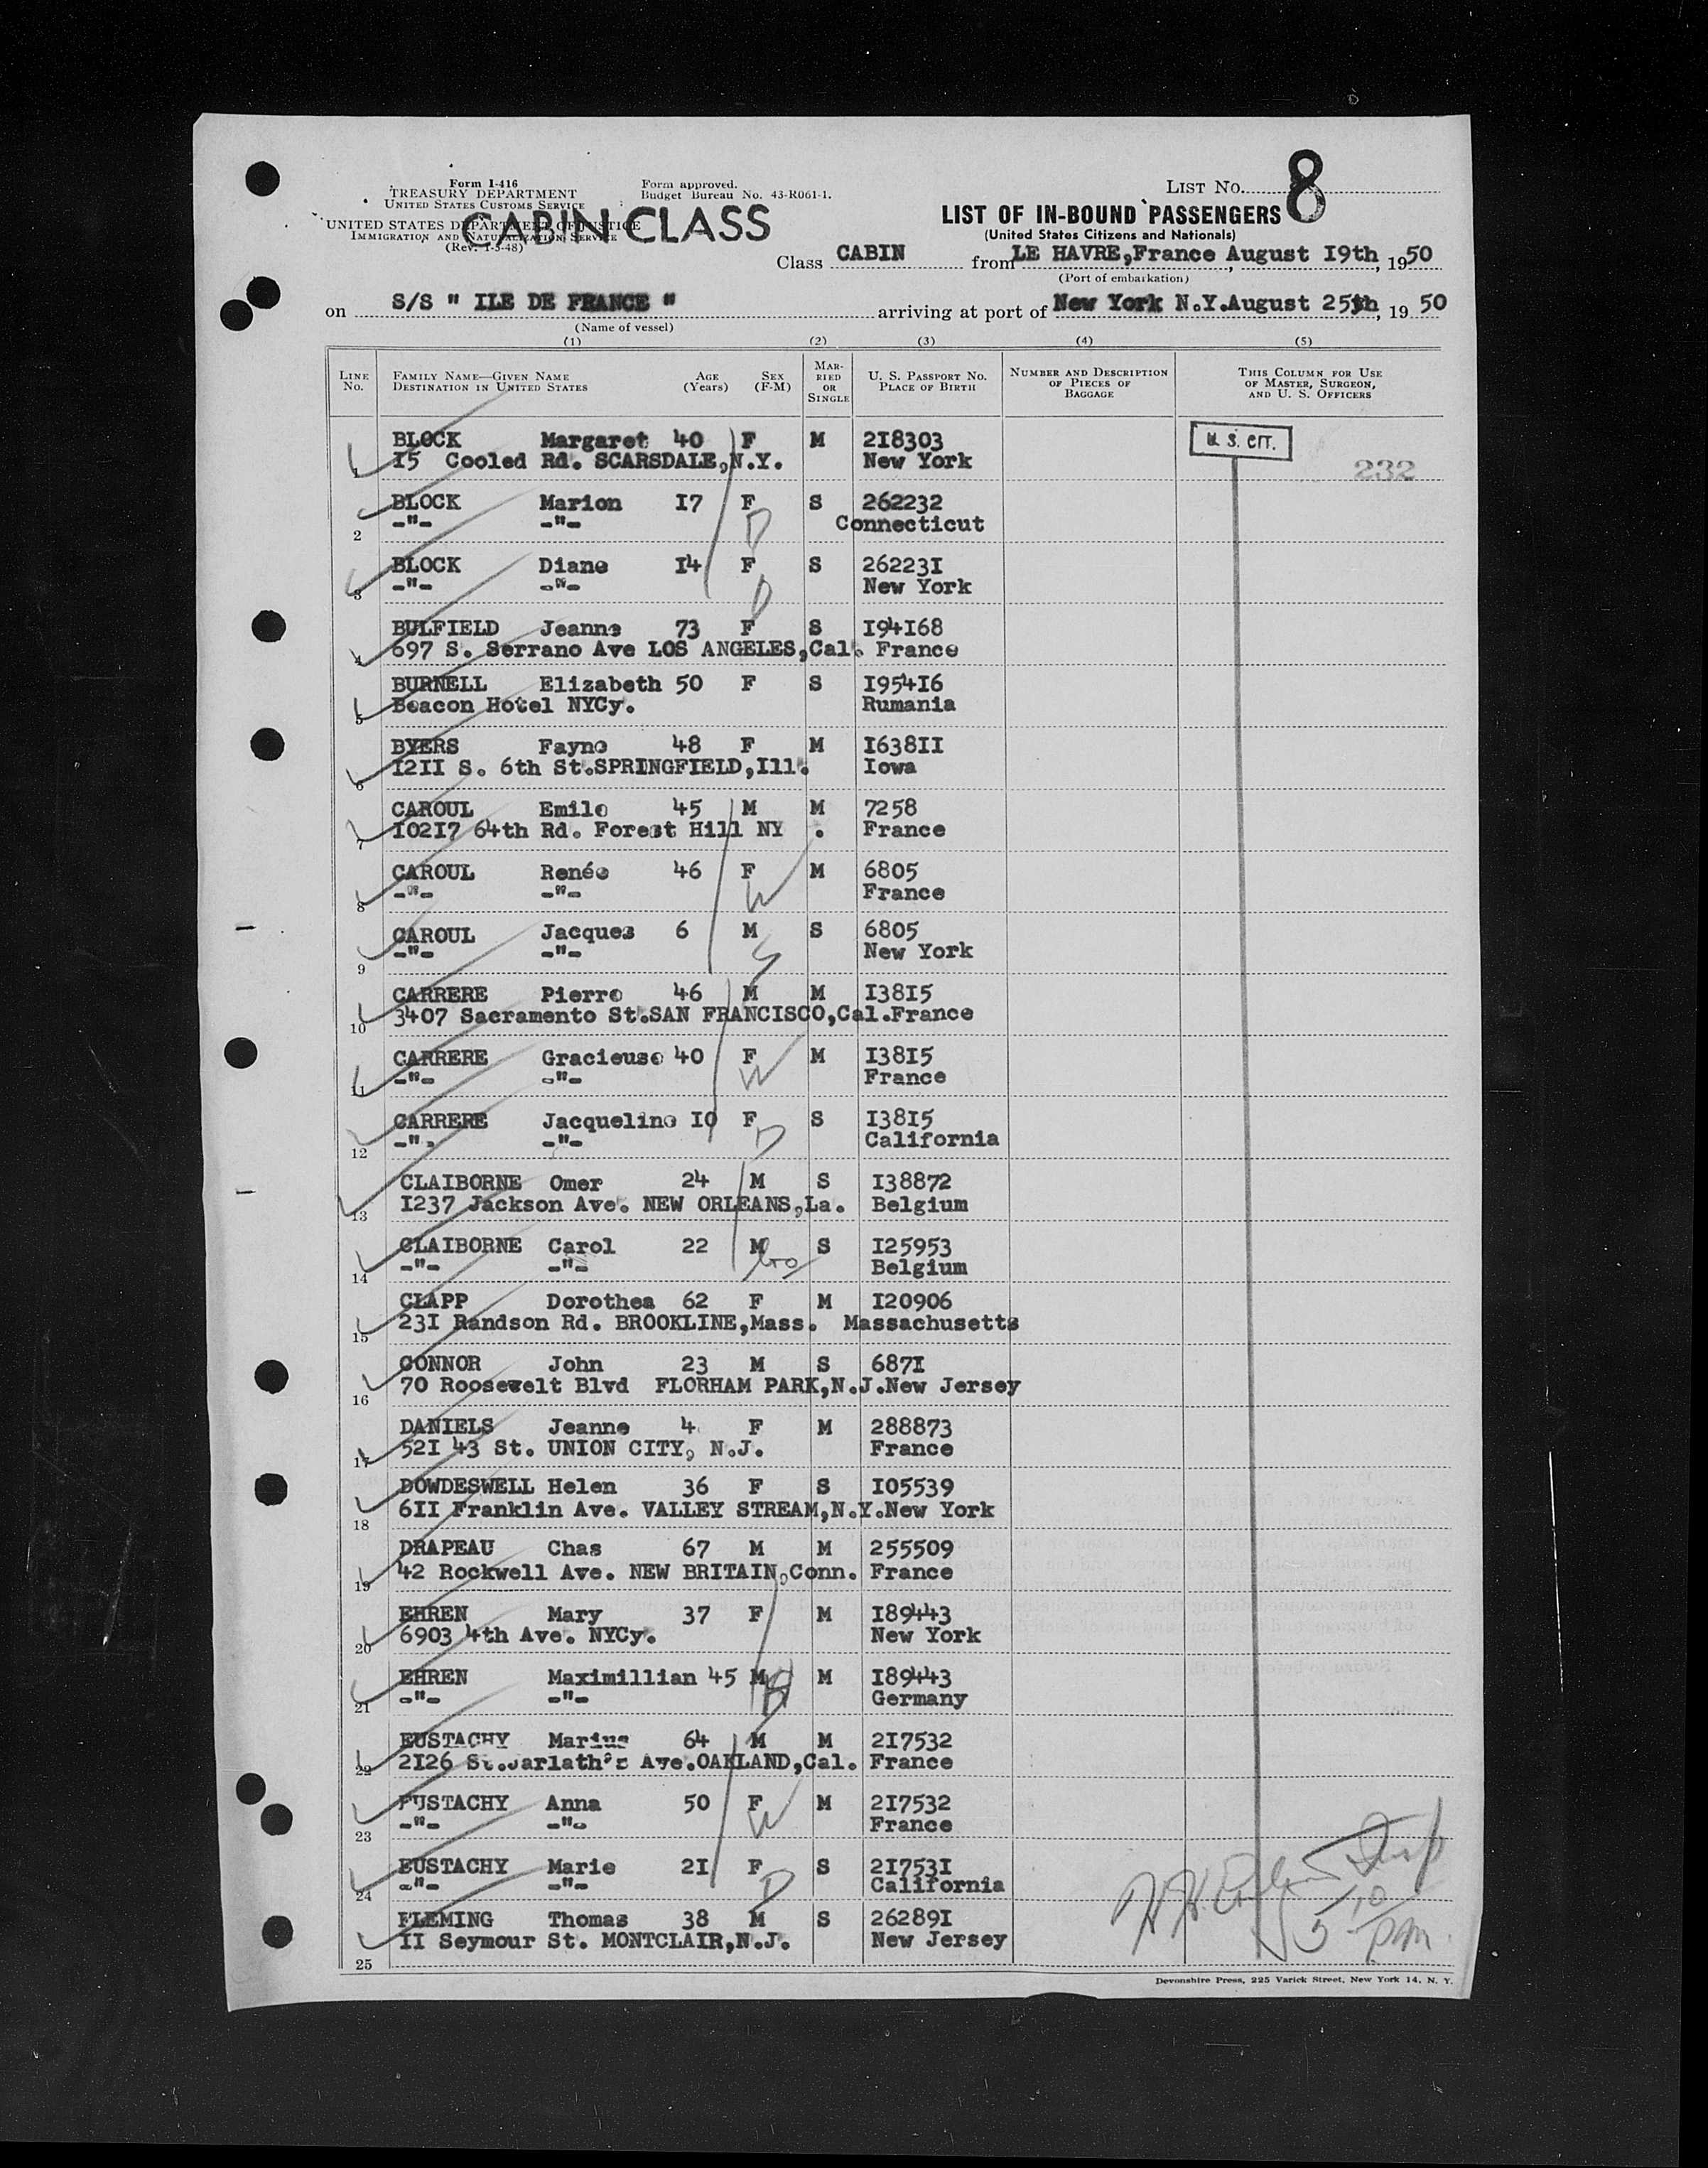 Form I-416
TREASURY DEPARTMENT
UNITED STATES CUSTOMS SERVICE
UNITED STATES DEPARTMENT OF JUSTICE
IMMIGRATION AND NATURALIZATION SERVICE
(Rev. 1-5-48)
Form approved.
Budget Bureau No. 43-R061-1.
CABIN CLASS
LIST No. 8
LIST OF IN-BOUND PASSENGERS
(United States Citizens and Nationals)
Class CABIN from LE HAVRE,France August I9th, 1950
(Port of embarkation)
on S/S " ILE DE FRANCE " arriving at port of New York N.Y.August 25th, 19 50
(Name of vessel)
(1) (2) (3) (4) (5)
LINE No. FAMILY NAME—GIVEN NAME DESTINATION IN UNITED STATES AGE (Years) SEX (F-M) MARRIED OR SINGLE U. S. PASSPORT NO. PLACE OF BIRTH NUMBER AND DESCRIPTION OF PIECES OF BAGGAGE THIS COLUMN FOR USE OF MASTER, SURGEON, AND U. S. OFFICERS
BLOCK Margaret 40 F M 2I8303 U.S. CIT.
1 I5 Cooled Rd. SCARSDALE,N.Y. New York 232
BLOCK Marion I7 F S 262232
2 -"- -"- D Connecticut
BLOCK Diane I4 F S 26223I
3 -"- -"- D New York
BULFIELD Jeanne 73 F S I94I68
4 697 S. Serrano Ave LOS ANGELES,Cal. France
BURNELL Elizabeth 50 F S I954I6
5 Beacon Hotel NYCy. Rumania
BYERS Fayne 48 F M I638II
6 I2II S. 6th St.SPRINGFIELD,Ill. Iowa
CAROUL Emile 45 M M 7258
7 I02I7 64th Rd. Forest Hill NY . France
CAROUL Renée 46 F M 6805
8 -"- -"- W France
CAROUL Jacques 6 M S 6805
9 -"- -"- S New York
CARRERE Pierre 46 M M I38I5
10 3407 Sacramento St.SAN FRANCISCO,Cal.France
CARRERE Gracieuse 40 F M I38I5
11 -"- -"- W France
CARRERE Jacqueline I0 F S I38I5
12 -"- -"- D California
CLAIBORNE Omer 24 M S I38872
13 I237 Jackson Ave. NEW ORLEANS,La. Belgium
CLAIBORNE Carol 22 M S I25953
14 -"- -"- Bro Belgium
CLAPP Dorothea 62 F M I20906
15 23I Randson Rd. BROOKLINE,Mass. Massachusetts
CONNOR John 23 M S 687I
16 70 Roosewelt Blvd FLORHAM PARK,N.J.New Jersey
DANIELS Jeanne 4 F M 288873
17 52I 43 St. UNION CITY, N.J. France
DOWDESWELL Helen 36 F S I05539
18 6II Franklin Ave. VALLEY STREAM,N.Y.New York
DRAPEAU Chas 67 M M 255509
19 42 Rockwell Ave. NEW BRITAIN,Conn. France
EHREN Mary 37 F M I89443
20 6903 4th Ave. NYCy. New York
EHREN Maximillian 45 M M I89443
21 -"- -"- H Germany
EUSTACHY Marius 64 M M 2I7532
22 2I26 St.Jarlath's Ave.OAKLAND,Cal. France
EUSTACHY Anna 50 F M 2I7532
23 -"- -"- W France
EUSTACHY Marie 2I F S 2I753I
24 -"- -"- D California
FLEMING Thomas 38 M S 26289I
25 II Seymour St. MONTCLAIR,N.J. New Jersey
5 10 pm
Devonshire Press, 225 Varick Street, New York 14, N. Y.